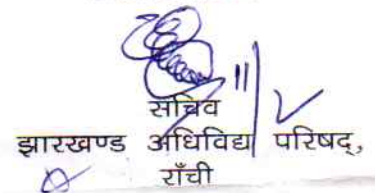 सचिव
झारखण्ड अधिविद्य परिषद्,
राँची